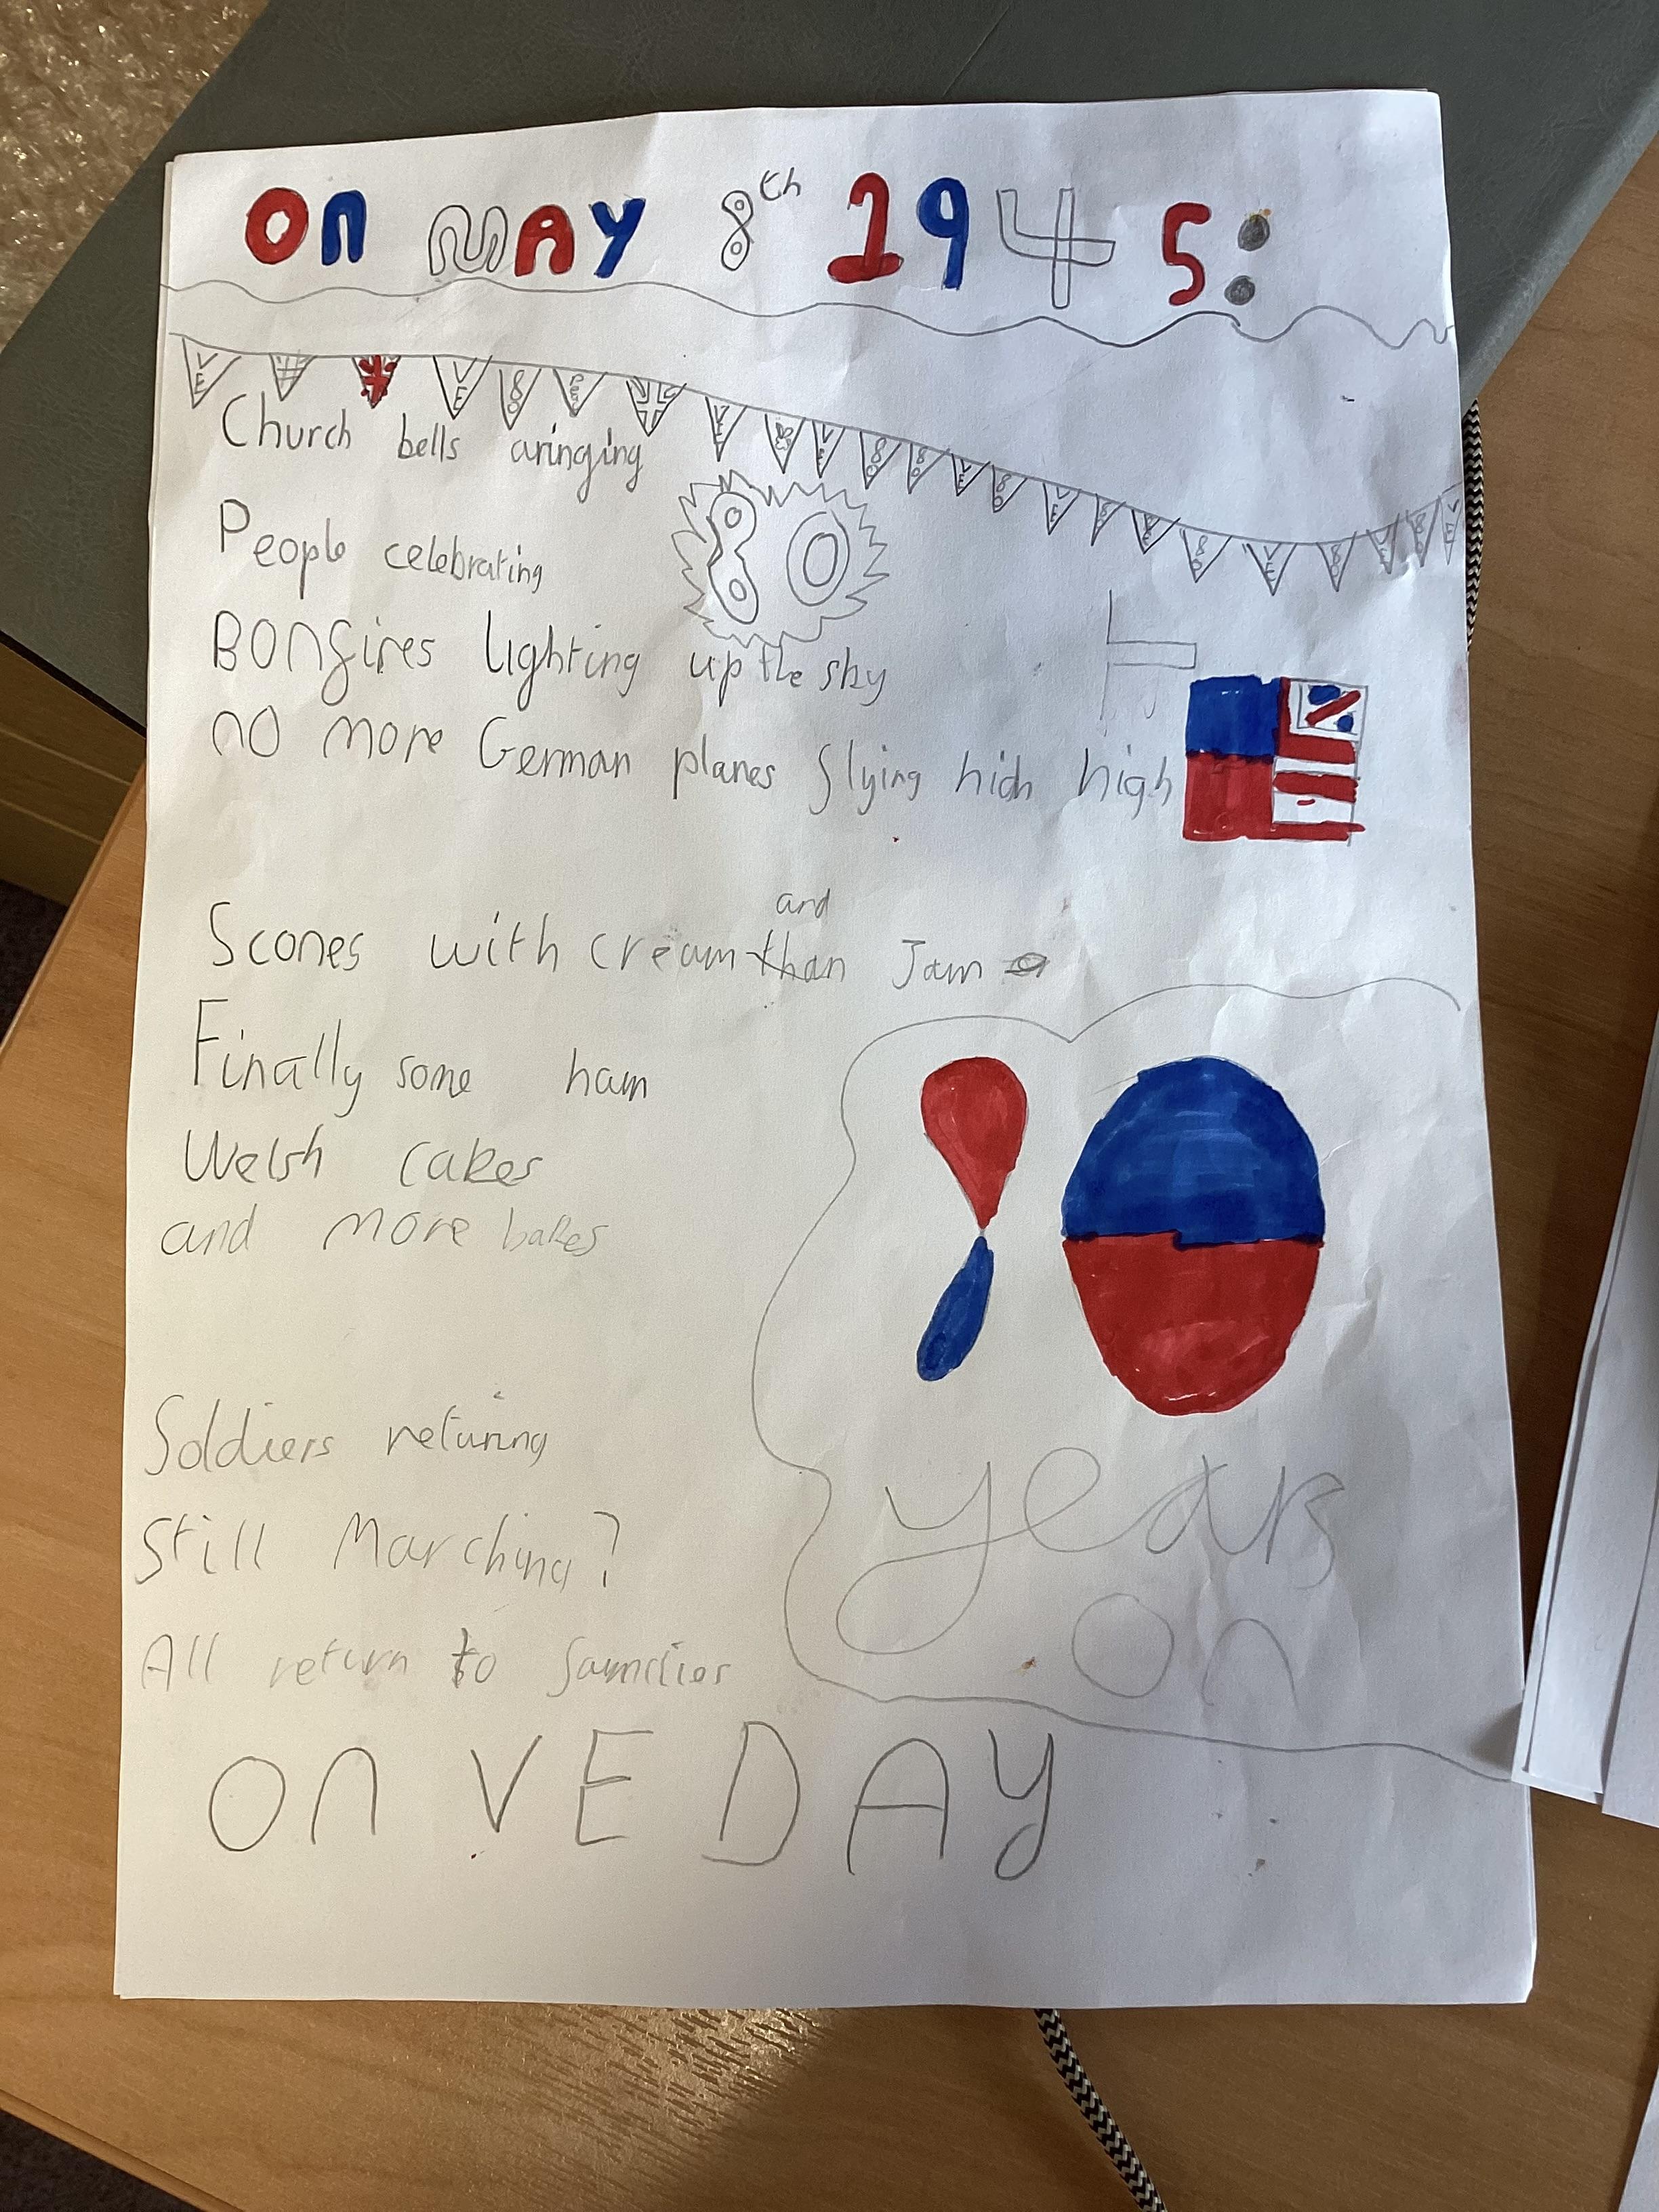 On MAY 8th 1945:
VE VE 80 VE VE 80 80 VE 80 VE 80 VE 80 VE 80 VE 80 VE
Church bells aringing
80
People celebrating
BONfires lighting up the sky
no more German planes flying high high
and
Scones with cream than Jam
Finally some ham
Welsh cakes
and more bakes
80
Soldiers returing
years
Still Marching?
on
All return to families
On VE DAY